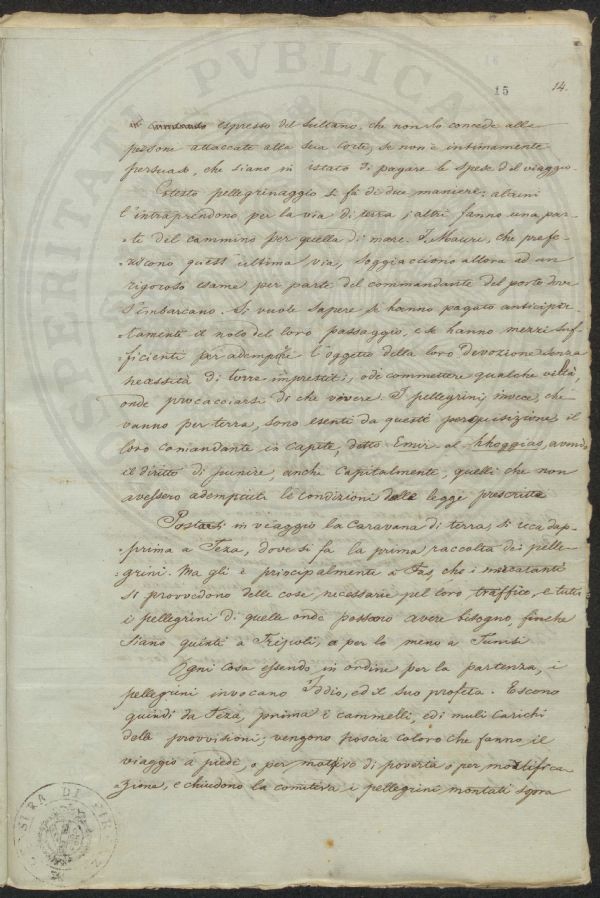 15 14.
espresso del Sultano, che non lo concede alle
persone attaccate alla sua Corte, se non è intimamente
persuaso, che siano in istato di pagare le spese del viaggio.
Cotesto pellegrinaggio si fà di due maniere; alcuni
l'intraprendono per la via di terra, altri fanno una par-
-te del cammino per quella di mare. I Mauri, che prefe-
-riscono quest'ultima via, soggiacciono allora ad un
rigoroso esame per parte del commandante del porto dove
s'imbarcano. Si vuole sapere se hanno pagato anticipa-
-tamente il nolo del loro passaggio, e se hanno mezzi suf-
-ficienti per adempire l'oggetto della loro devozione senza
necessità di torre imprestiti, o di commettere qualche viltà,
onde procacciarsi di che vivere. I pellegrini invece, che
vanno per terra, sono esenti da queste perquisizioni, il
loro comandante in capite, detto Emir al Hhoggias, avendo
il diritto di punire, anche capitalmente, quelli che non
avessero adempiute le condizioni dalle leggi prescritte
Postasi in viaggio la Caravana di terra, si reca dap-
-prima a Teza, dove si fa la prima raccolta dei pelle-
-grini. Ma gli è principalmente a Fas, che i mercatanti
si provvedono delle cose necessarie pel loro traffico, e tutti
i pellegrini di quelle onde possano avere bisogno, finche
siano giunti a Tripoli, o per lo meno a Tunisi
Ogni cosa essendo in ordine per la partenza, i
pellegrini invocano Iddio, ed il suo profeta. Escono
quindi da Teza, prima i cammelli, ed i muli carichi
delle provvisioni; vengono poscia coloro che fanno il
viaggio a piede, o per motivo di povertà o per mortifica-
-zione, e chiudono la comitiva i pellegrini montati sopra
PROSPERITATI PUBLICAE